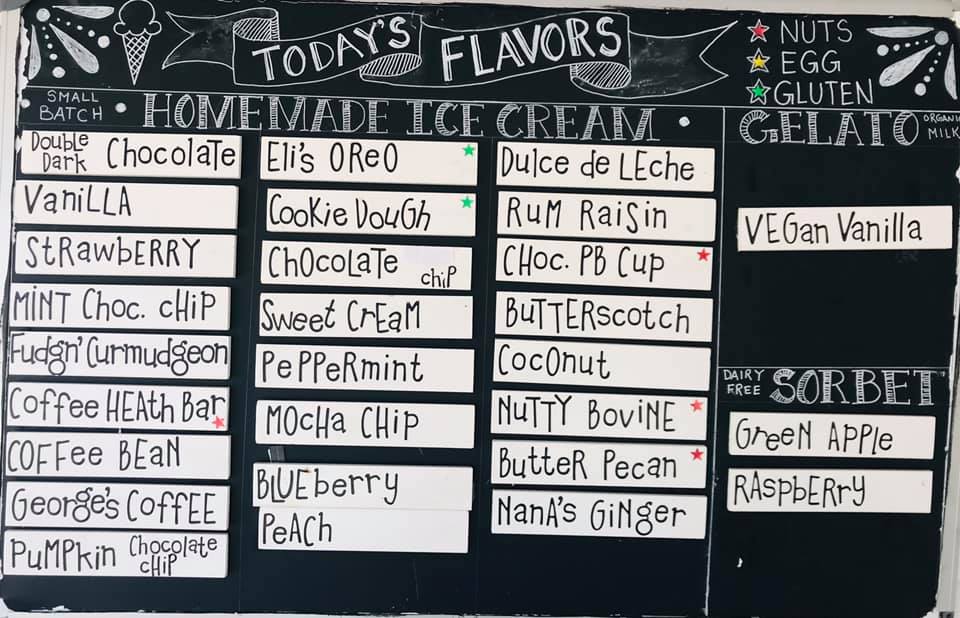 TODAY'S FLAVORS
NUTS
EGG
GLUTEN
SMALL BATCH • HOMEMADE ICE CREAM •
Double Dark Chocolate
Vanilla
Strawberry
Mint Choc. Chip
Fudgn' Curmudgeon
Coffee Heath Bar
Coffee Bean
George's Coffee
Pumpkin Chocolate Chip
Eli's Oreo
Cookie Dough
Chocolate chip
Sweet Cream
Peppermint
Mocha Chip
Blueberry
Peach
Dulce de Leche
Rum Raisin
Choc. PB Cup
Butterscotch
Coconut
Nutty Bovine
Butter Pecan
Nana's Ginger
GELATO ORGANIC MILK
Vegan Vanilla
DAIRY FREE SORBET
Green Apple
Raspberry